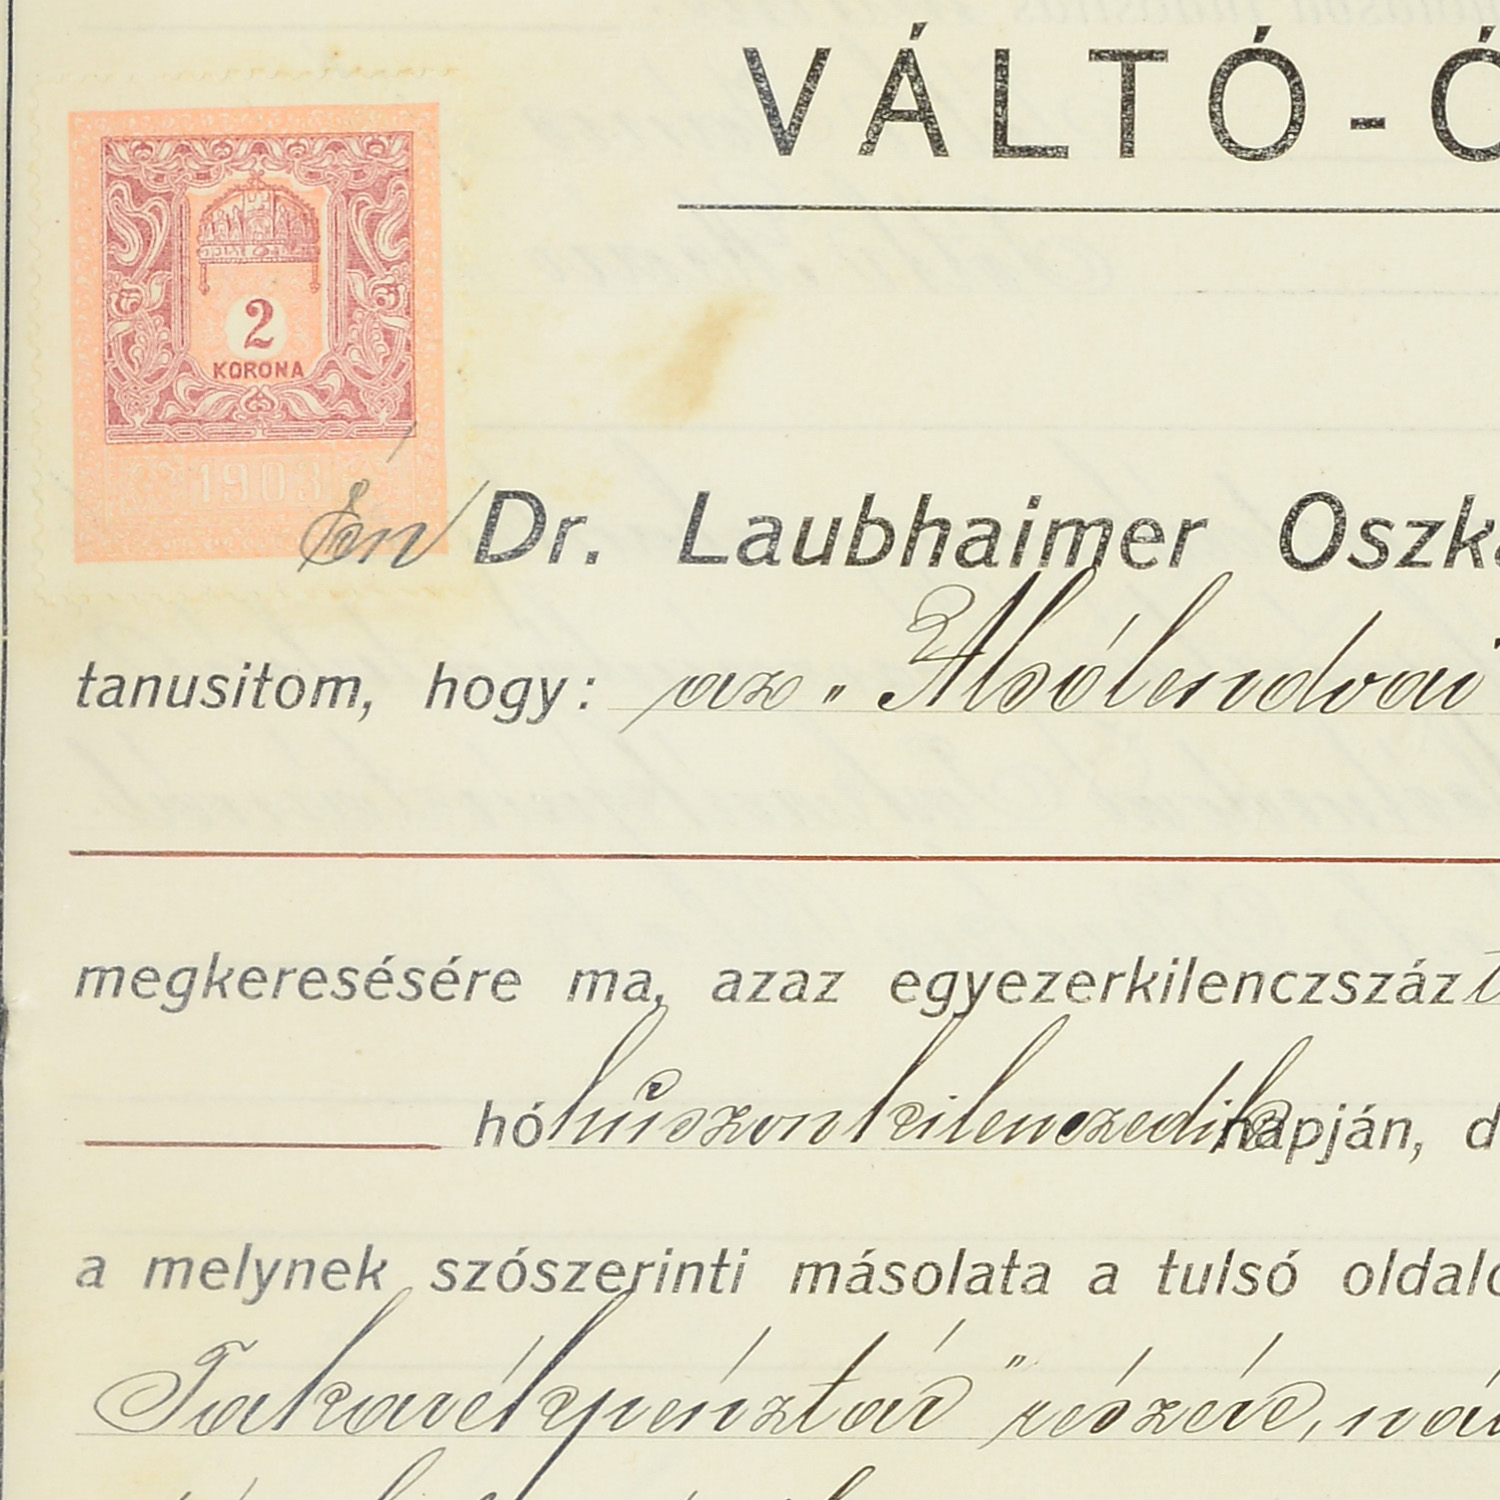 VÁLTÓ-Ó
2
KORONA
1903
Én Dr. Laubhaimer Oszká
tanusitom, hogy: az „Alsólendvai
megkeresésére ma, azaz egyezerkilenczszáz
hó huszonkilenczedik napján, d
a melynek szószerinti másolata a tulsó oldalo
Takarékpénztár" részére, ná